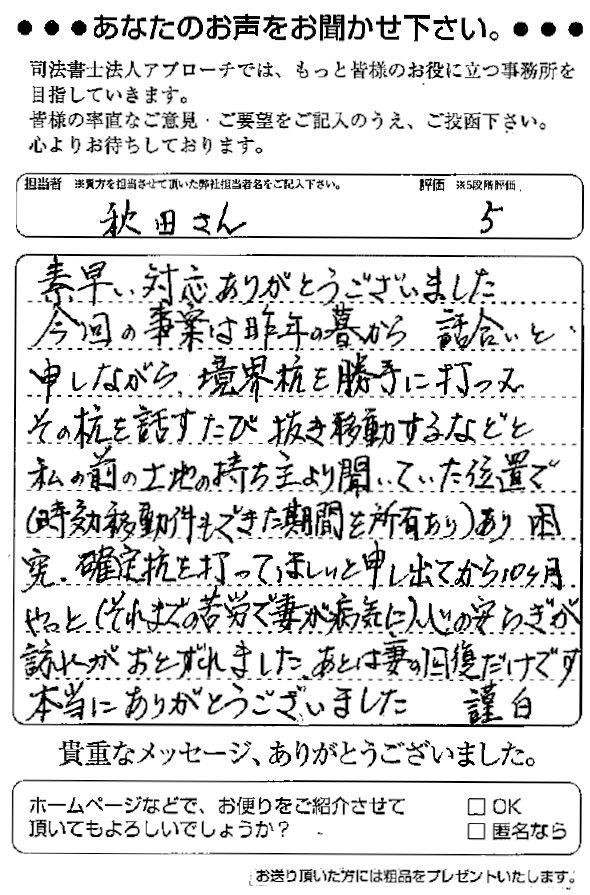 ●●●あなたのお声をお聞かせ下さい。●●●
司法書士法人アプローチでは、もっと皆様のお役に立つ事務所を
目指していきます。
皆様の率直なご意見・ご要望をご記入のうえ、ご投函下さい。
心よりお待ちしております。
担当者 ※貴方を担当させて頂いた弊社担当者名をご記入下さい。 評価 ※5段階評価
秋田さん 5
素早い対応ありがとうございました
今回の事案は昨年の暮から 話合いと
申しながら、境界杭を勝手に打って
その杭を話すたび抜き移動するなどと
私の前の土地の持ち主より聞いていた位置で
(時効移動件もできた期間を所有あり)あり 困
窮、確定杭を打ってほしいと申し出てから10ヶ月
やっと(それまでの苦労で妻が病気に)心の安らぎが
訪れがおとずれました、あとは妻の回復だけです
本当にありがとうございました 謹白
貴重なメッセージ、ありがとうございました。
ホームページなどで、お便りをご紹介させて
頂いてもよろしいでしょうか?
□ OK
□ 匿名なら
お送り頂いた方には粗品をプレゼントいたします。